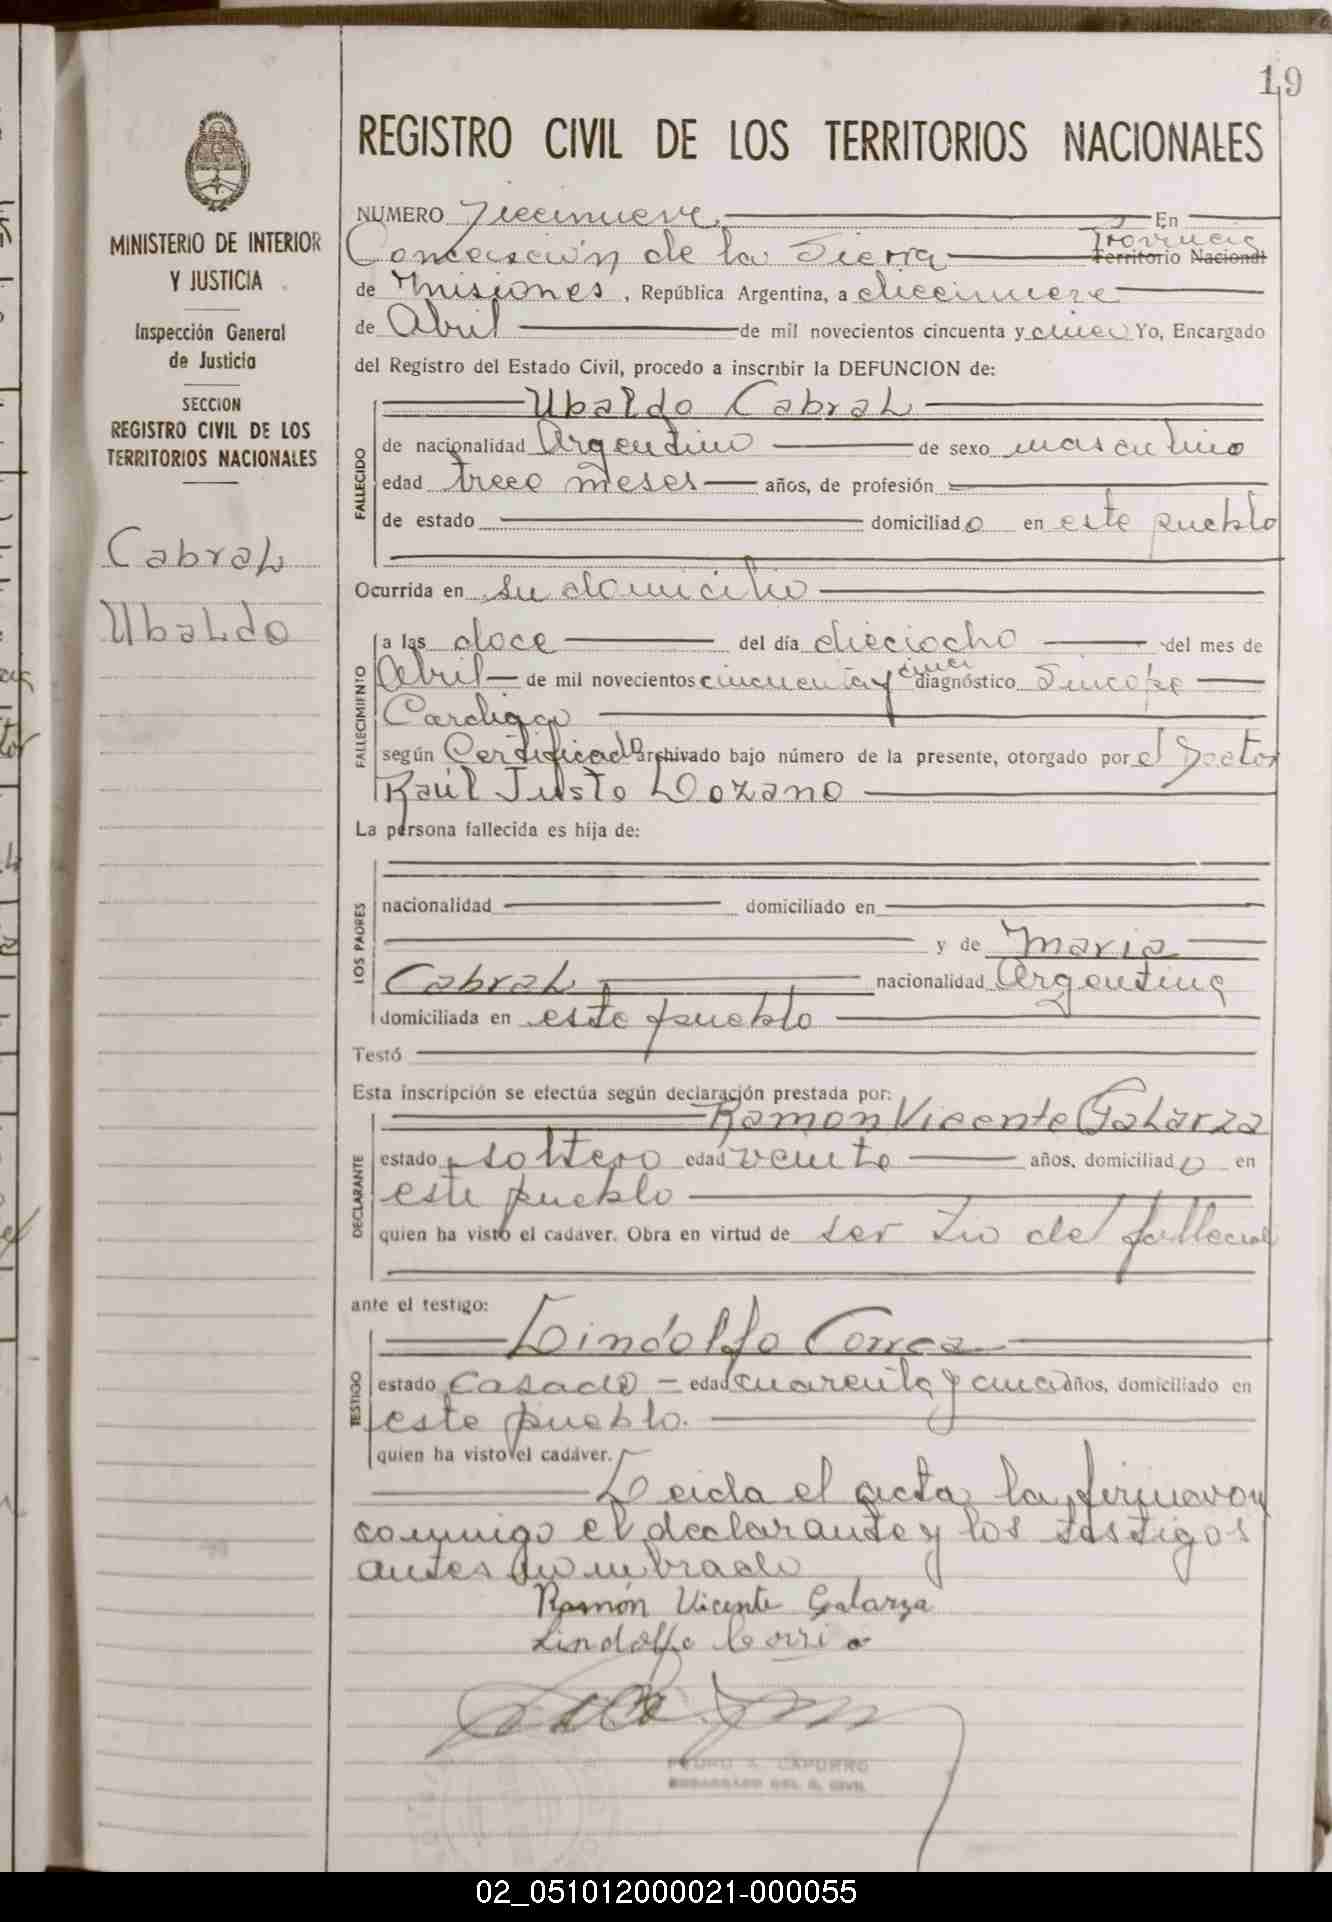 19
REGISTRO CIVIL DE LOS TERRITORIOS NACIONALES
MINISTERIO DE INTERIOR
Y JUSTICIA
Inspección General
de Justicia
SECCION
REGISTRO CIVIL DE LOS
TERRITORIOS NACIONALES
Cabral
Ubaldo
NUMERO Diecinueve En
Concepción de la Sierra Provincia Territorio Nacional
de Misiones, República Argentina, a diecinueve
de Abril de mil novecientos cincuenta y cinco Yo, Encargado
del Registro del Estado Civil, procedo a inscribir la DEFUNCION de:
FALLECIDO
Ubaldo Cabral
de nacionalidad Argentino de sexo masculino
edad trece meses años, de profesión
de estado domiciliado en este pueblo
Ocurrida en su domicilio
FALLECIMIENTO
a las doce del día dieciocho del mes de
Abril de mil novecientos cincuenta y cinco diagnóstico Sincope
Cardiaco
según Certificado archivado bajo número de la presente, otorgado por el Doctor
Raúl Justo Lozano
La persona fallecida es hija de:
LOS PADRES
nacionalidad domiciliado en
y de Maria
Cabral nacionalidad Argentina
domiciliada en este pueblo
Testó
Esta inscripción se efectúa según declaración prestada por:
DECLARANTE
Ramon Vicente Galarza
estado soltero edad veinte años, domiciliado en
este pueblo
quien ha visto el cadáver. Obra en virtud de ser tio del fallecido
ante el testigo:
TESTIGO
Lindolfo Correa
estado casado edad cuarenta y cinco años, domiciliado en
este pueblo.
quien ha visto el cadáver.
Leida el acta, la firmaron
conmigo el declarante y los testigos
antes nombrado
Ramón Vicente Galarza
Lindolfo Corria
PEDRO A. CAPURRO
ENCARGADO DEL R. CIVIL
02_051012000021-000055